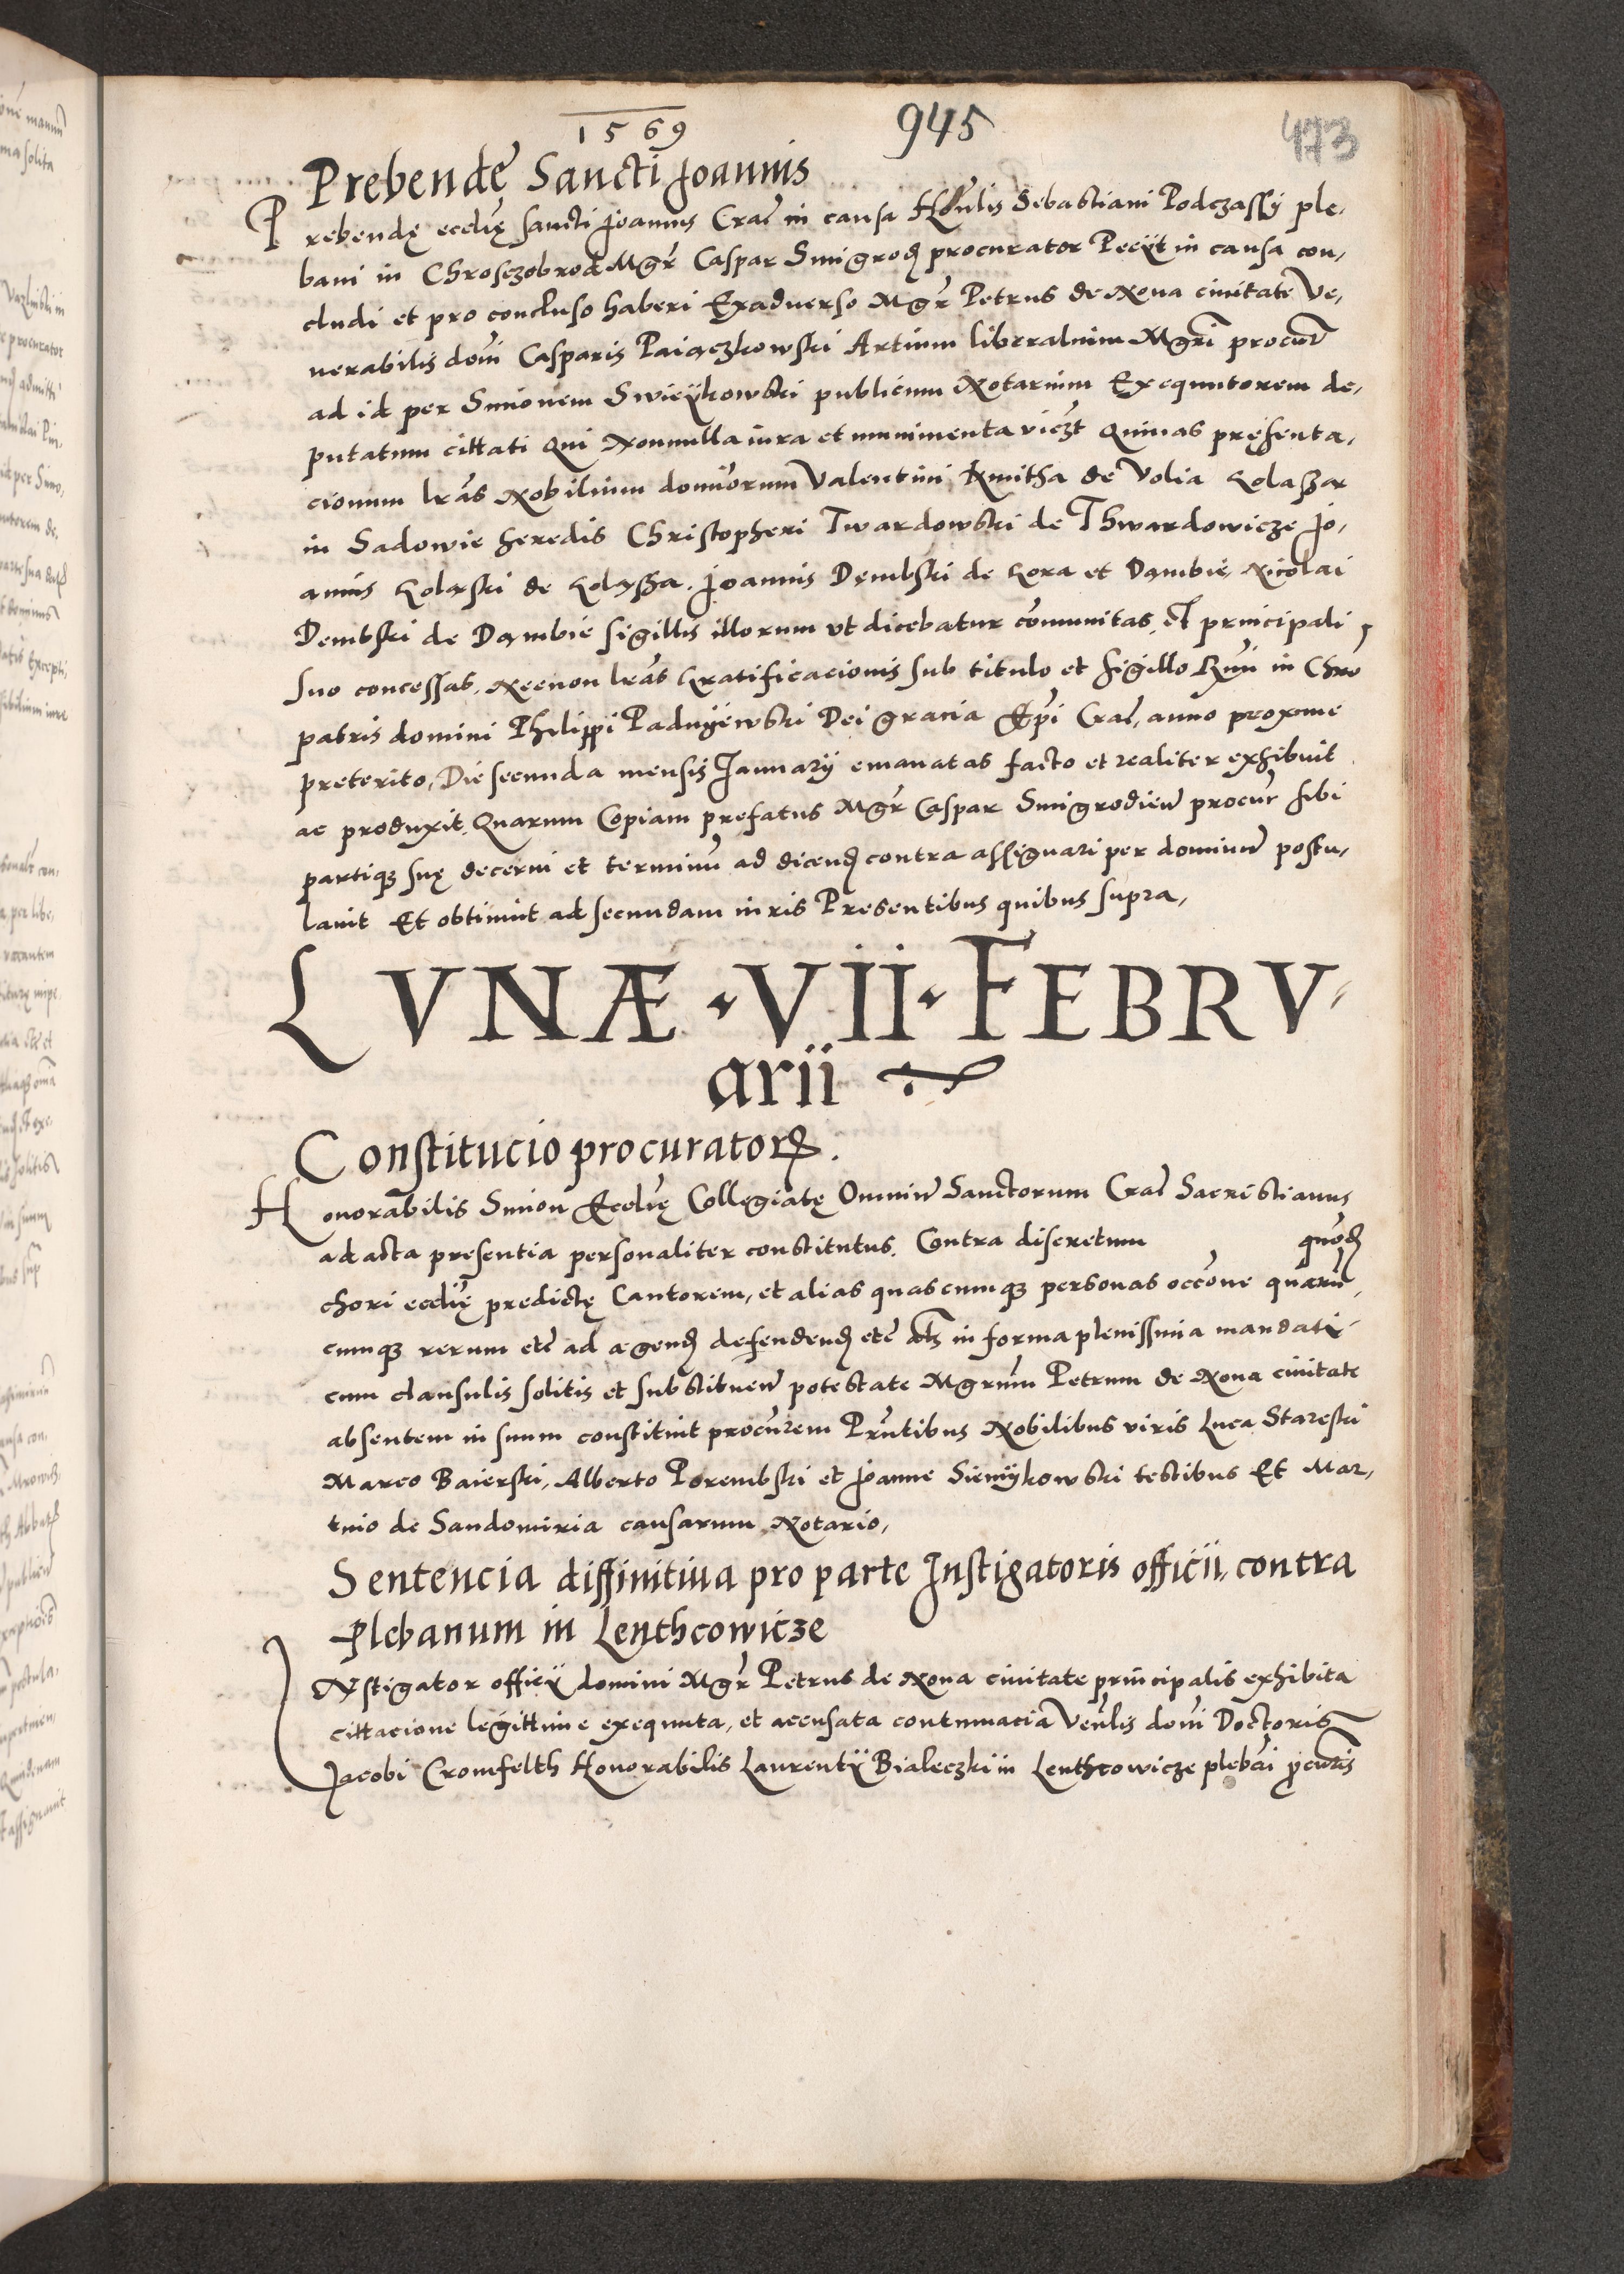 1569
945
473
Prebendę Sancti Joannis
Prebendę ecclię sancti Joannis Crac̄ in causa Honlis Sebastiani Podczassy ple,
bani in Chrosczobrod Mgr̄ Caspar Smigrod procurator Peciit in causa con,
cludi et pro concluso haberi Exaduerso Mgr̄ Petrus de Noua ciuitate Ve,
nerabilis dom̄ Casparis Paiączkowski Artium liberalium Mgrī procur̄
ad id per Simonem Swieykowski publicum Notarium Exequutorem de,
putatum cittati Qui Nonnulla iura et munimenta viczt Quinas pręsenta,
cionum lrās Nobilium domiorum Valentini Kmitha de Volia
in Sadowie heredis Christopheri Twardowski de Thwardowicze Jo,
annis de Joannis Dembski de Gora et Dambie, Nicolai
Dembski de Dambie sigillis illorum vt dicebatur com̄unitas, et principali
suo concessas, Necnon lrās Gratificacionis sub titulo et sigillo Rm̄i in Chro
patris domini Philippi Padnyewski Dei gracia Ep̄i Crac̄, anno proxime
preterito, Die secunda mensis Januarij emanatas facto et realiter exhibuit
ac produxit. Quarum Copiam prefatus Mgr̄ Caspar Smigrodien̄ procur̄ sibi
partiq3 suę decerni et terminū ad dicend contra assignari per dominū postu,
lauit Et obtinuit ad secundam iuris Presentibus quibus supra,
LVNÆ · VII · FEBRV
arii
Constitucio procurator.
Honorabilis Simon Ecclię Collegiatę Omniū Sanctorum Crac̄ Sacristianus
ad acta presentia personaliter constitutus. Contra discretum quond
chori ecclię predictę Cantorem, et alias quascumq3 personas occōne quarū,
cumq3 rerum etc̄ ad agend defendend etc̄ in forma plenissima mandati
cum clausulis solitis et substituen̄ potestate Mgrum̄ Petrum de Noua ciuitate
absentem in suum constituit procūrem Prn̄tibus Nobilibus viris Luca Stareski
Marco Baierski, Alberto Porembski et Joanne Sieniykowski testibus Et Mar,
tino de Sandomiria causarum Notario,
Sentencia diffinitiua pro parte Instigatoris officii, contra
Plebanum in Lenthcowicze
INstigator officij domini Mgr̄ Petrus de Noua ciuitate principalis exhibita
cittacione legittime exequuta, et accusata contumacia Venlis dom̄ Doctoris
Jacobi Cromfelth Honorabilis Laurentij Bialeczki in Lenthcowicze plebāi pcūris